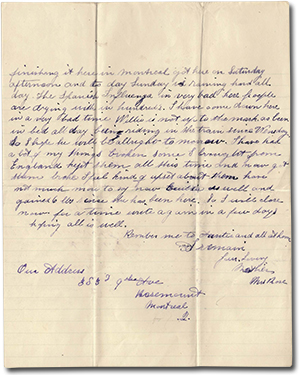 finishing it here in Montreal got here on Saturday
afternoon and to day Sunday is raining hard all
day. The Spanish influenza is very bad here people
are dying with in hundreds. I have come down here
in a very bad time Willie is not up to the mark as been
in bed all day being riding in the train since Wensday
So I hope he will be allright to morrow. I have had
a lot of my things broken since I brought from
England kept them all this time and now got
them broke I feel kind of upset about them have
not much more to say now Gertie is well and
gained 6 lbs since she has been here, So I will close
now for a time write again in a few days
hoping all is well.
Remember me to Auntie and all at home
I remain
Your loving
Mother
Mrs Rose
Our Address
Ave
Rosemount
Montreal